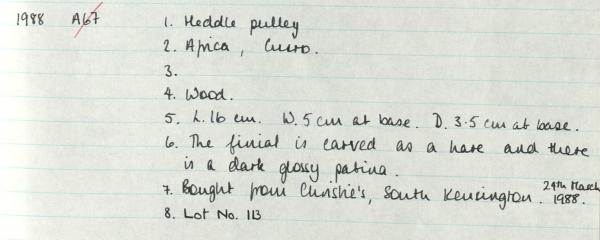 1988 A67 1. Heddle pulley
2. Africa, Guro.
3.
4. Wood.
5. L. 16 cm. W. 5 cm at base. D. 3.5 cm at base.
6. The finial is carved as a hare and there
is a dark glossy patina.
7. Bought from Christie's, South Kensington. 24th March
1988.
8. Lot No. 113